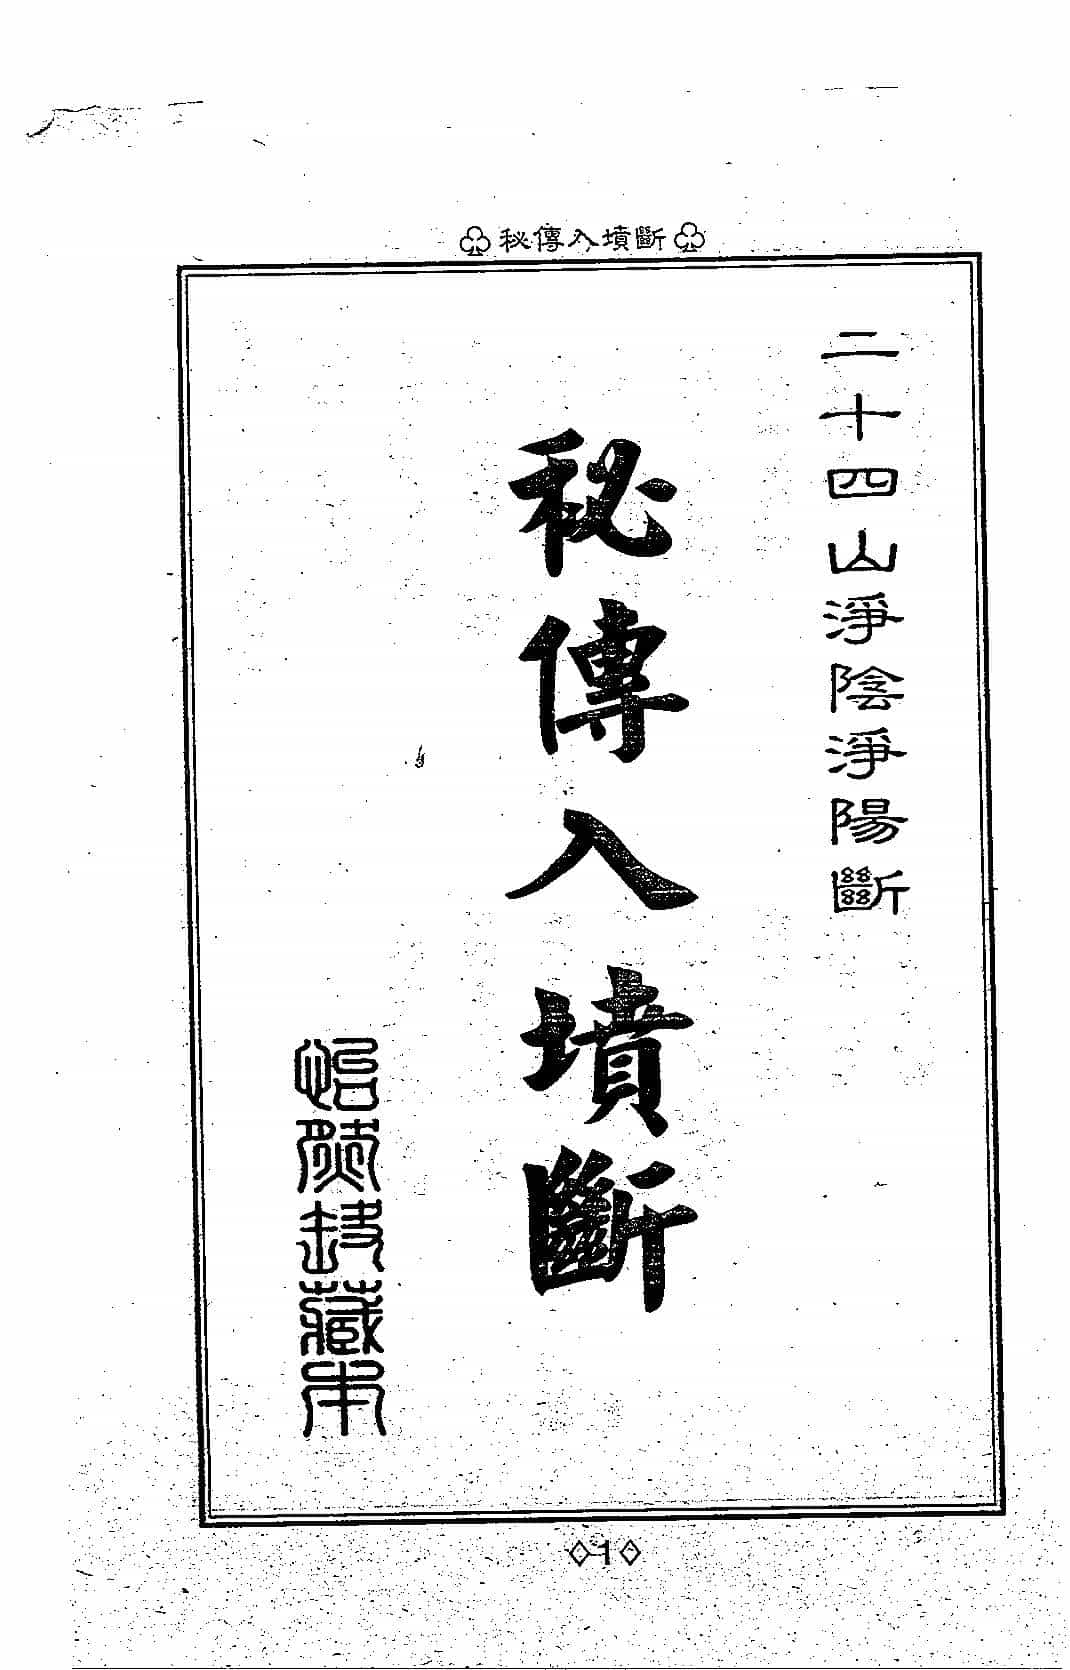 ♧秘傳入墳斷♧
二十四山淨陰淨陽斷
秘傳入墳斷
藏本
◇1◇